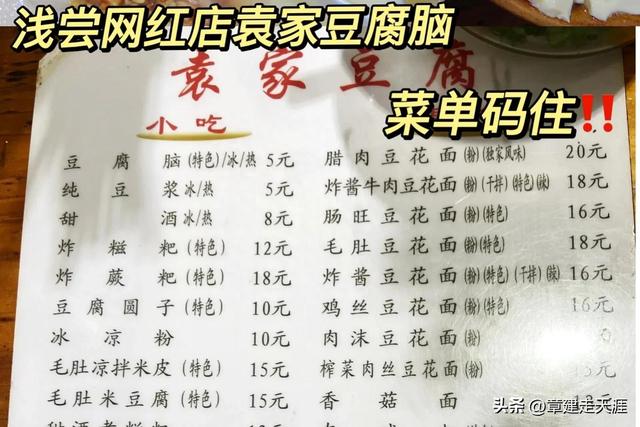 浅尝网红店袁家豆腐脑
袁家豆腐
菜单码住‼️
小吃
豆腐脑(特色)/冰/热 5元
纯豆浆冰/热 5元
甜酒冰/热 8元
炸糍粑(特色) 12元
炸蕨粑(特色) 18元
豆腐圆子(特色) 10元
冰凉粉 10元
毛肚凉拌米皮(特色) 15元
毛肚米豆腐(特色) 15元
腊肉豆花面(粉)(独家风味) 20元
炸酱牛肉豆花面(粉)(干拌)(特色)(辣) 18元
肠旺豆花面(粉)(特色) 16元
毛肚豆花面(粉)(特色) 18元
炸酱豆花面(粉)(特色)(干拌)(辣) 16元
鸡丝豆花面(粉)(特色) 16元
肉沫豆花面(粉) 元
榨菜肉丝豆花面(粉) 元
香菇面
头条 @章建走天涯